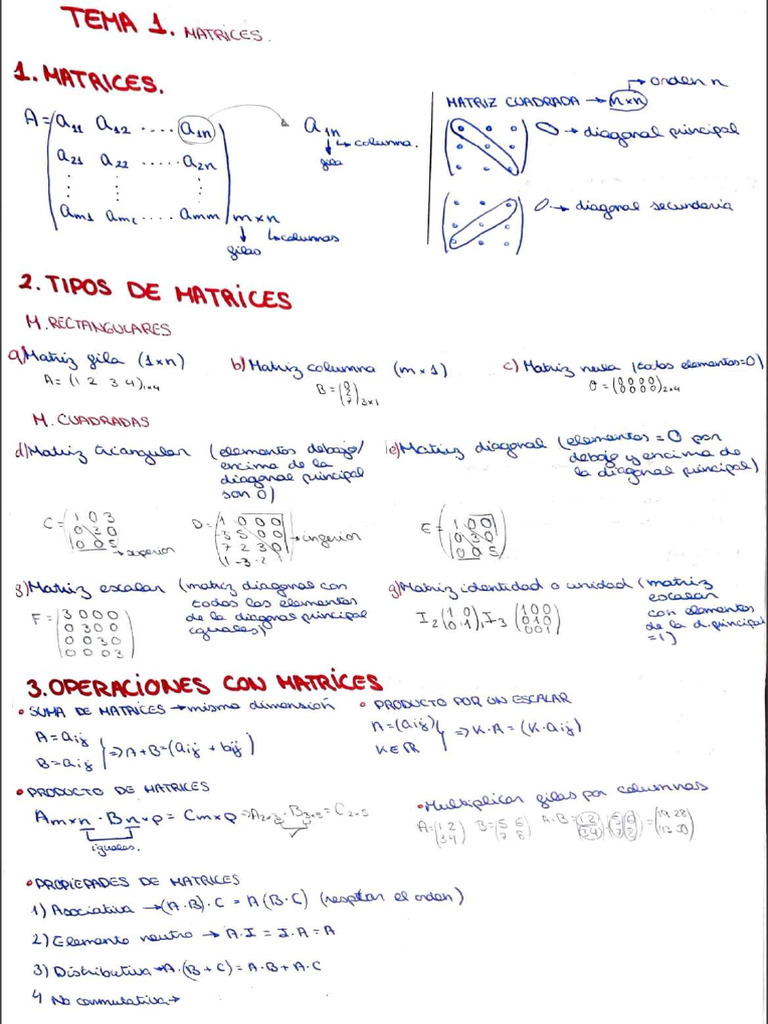 TEMA 1. MATRICES.
1. MATRICES.
A = (a11 a12 .... a1n
a21 a22 ..... a2n
⋮ ⋮ ⋮
am1 am2 .... amm) m×n
↓ filas
↳ columnas
a1n
↳ columna.
↓ fila
MATRIZ CUADRADA → n×n → orden n
→ diagonal principal
→ diagonal secundaria
2. TIPOS DE MATRICES
M. RECTANGULARES
a) Matriz fila (1×n)
A = (1 2 3 4)1×4
b) Matriz columna (m×1)
3×1
c) Matriz nula (todos elementos=0)
O = (0 0 0 0
0 0 0 0)2×4
M. CUADRADAS
d) Matriz triangular (elementos debajo/
encima de la
diagonal principal
son 0)
C = (1 0 3
0 3 0
0 0 5) → superior
D = (1 0 0 0
-3 5 0 0
7 2 3 0
1 -3 -2 → inferior
e) Matriz diagonal (elementos = 0 por
debajo y encima de
la diagonal principal)
E = (1 0 0
0 3 0
0 0 5)
f) Matriz escalar (matriz diagonal con
todos los elementos
de la diagonal principal
iguales)
F = (3 0 0 0
0 3 0 0
0 0 3 0
0 0 0 3)
g) Matriz identidad o unidad (matriz
escalar
con elementos
de la d. principal
=1)
I2 (1 0
0 1), I3 (1 0 0
0 1 0
0 0 1)
3. OPERACIONES CON MATRICES
• SUMA DE MATRICES → misma dimensión
A = aij
B = aij } ⇒ A + B = (aij + bij)
• PRODUCTO POR UN ESCALAR
A = (aij)
K ∈ R } ⇒ K · A = (K · aij)
• PRODUCTO DE MATRICES
Am×n · Bn×p = Cm×p ⇒ A2×3 · B3×5 = C2×5
iguales.
• Multiplicar filas por columnas
A = (1 2
3 4) B = (5 6
7 8) A·B = (1 2
3 4) · (5 6
7 8) = (19 28
50)
• PROPIEPADES DE MATRICES
1) Asociativa → (A·B)·C = A(B·C) (respetar el orden)
2) Elemento neutro → A·I = I·A = A
3) Distributiva → A·(B + C) = A·B + A·C
4 No conmutativa →